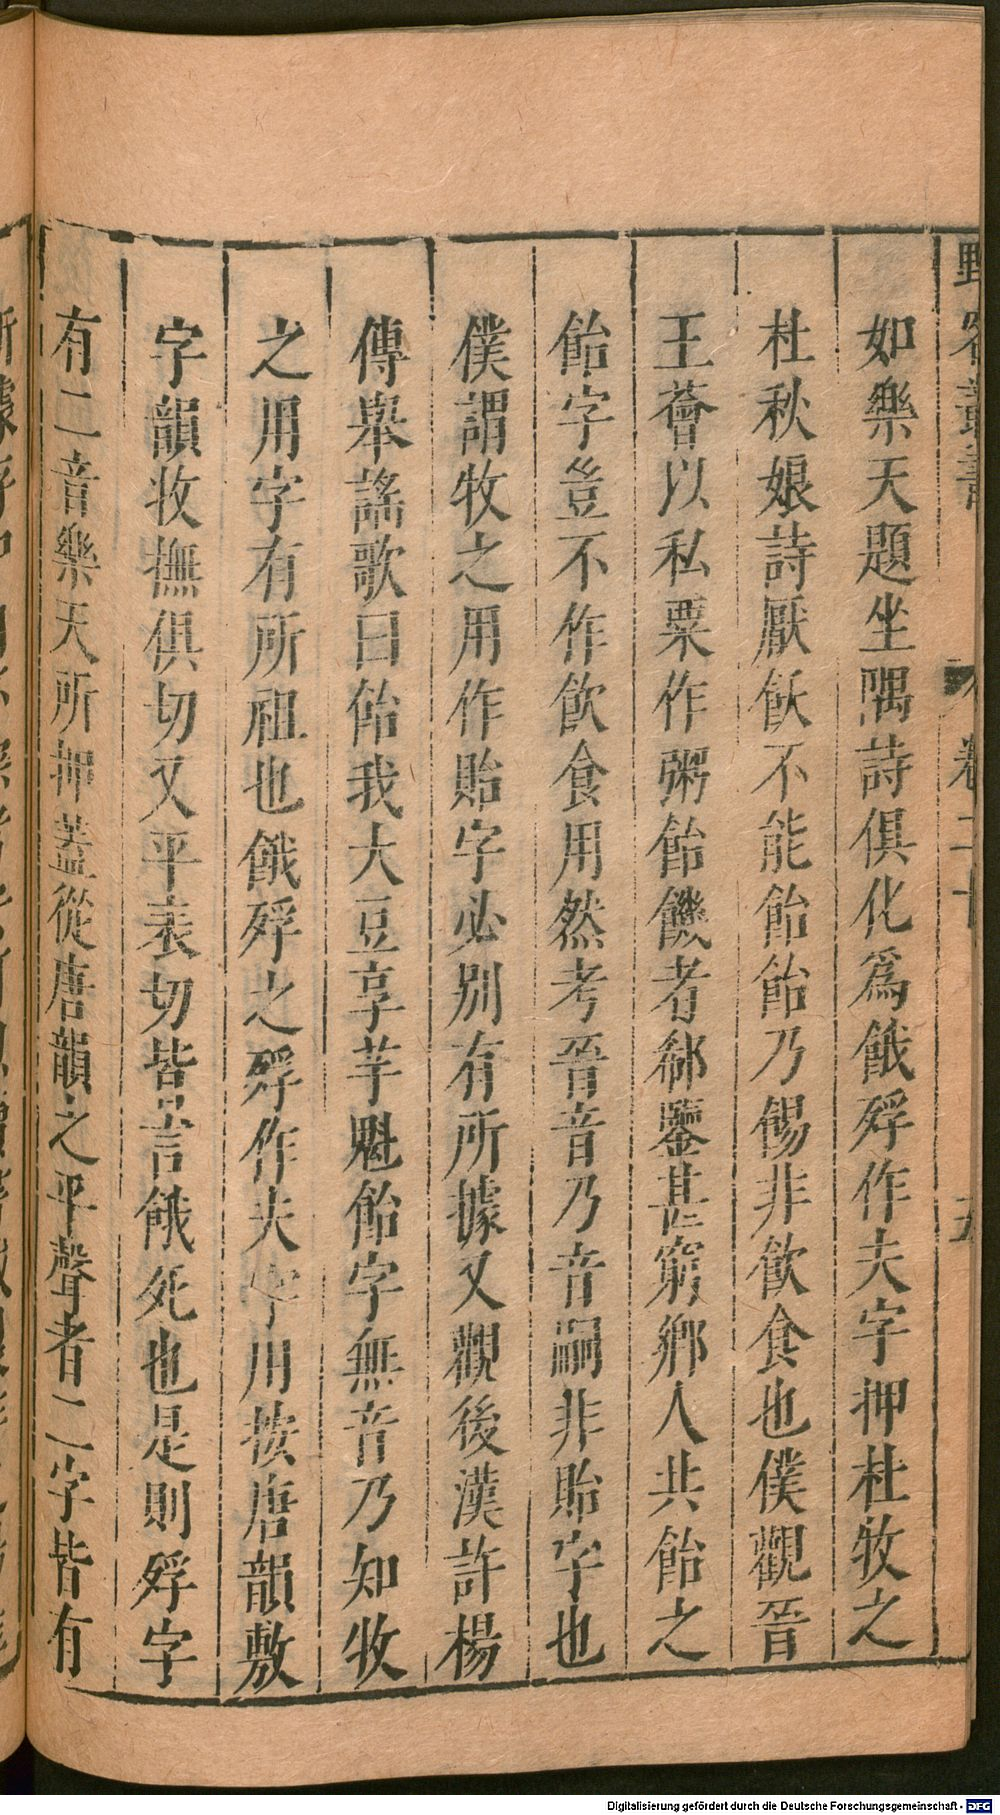 野客叢書
卷二十
五
如樂天題坐隅詩俱化爲餓殍作夫字押杜牧之
杜秋娘詩厭飫不能飴飴乃餳非飲食也僕觀晉
王薈以私粟作粥飴饑者郗鑒甚窮鄉人共飴之
飴字豈不作飲食用然考晉音乃音嗣非貽字也
僕謂牧之用作貽字必別有所據又觀後漢許楊
傳舉謠歌曰飴我大豆享芋魁飴字無音乃知牧
之用字有所祖也餓殍之殍作夫字用按唐韻敷
字韻收撫俱切又平表切皆言餓死也是則殍字
有二音樂天所押蓋從唐韻之平聲者二字皆有
Digitalisierung gefördert durch die Deutsche Forschungsgemeinschaft - DFG